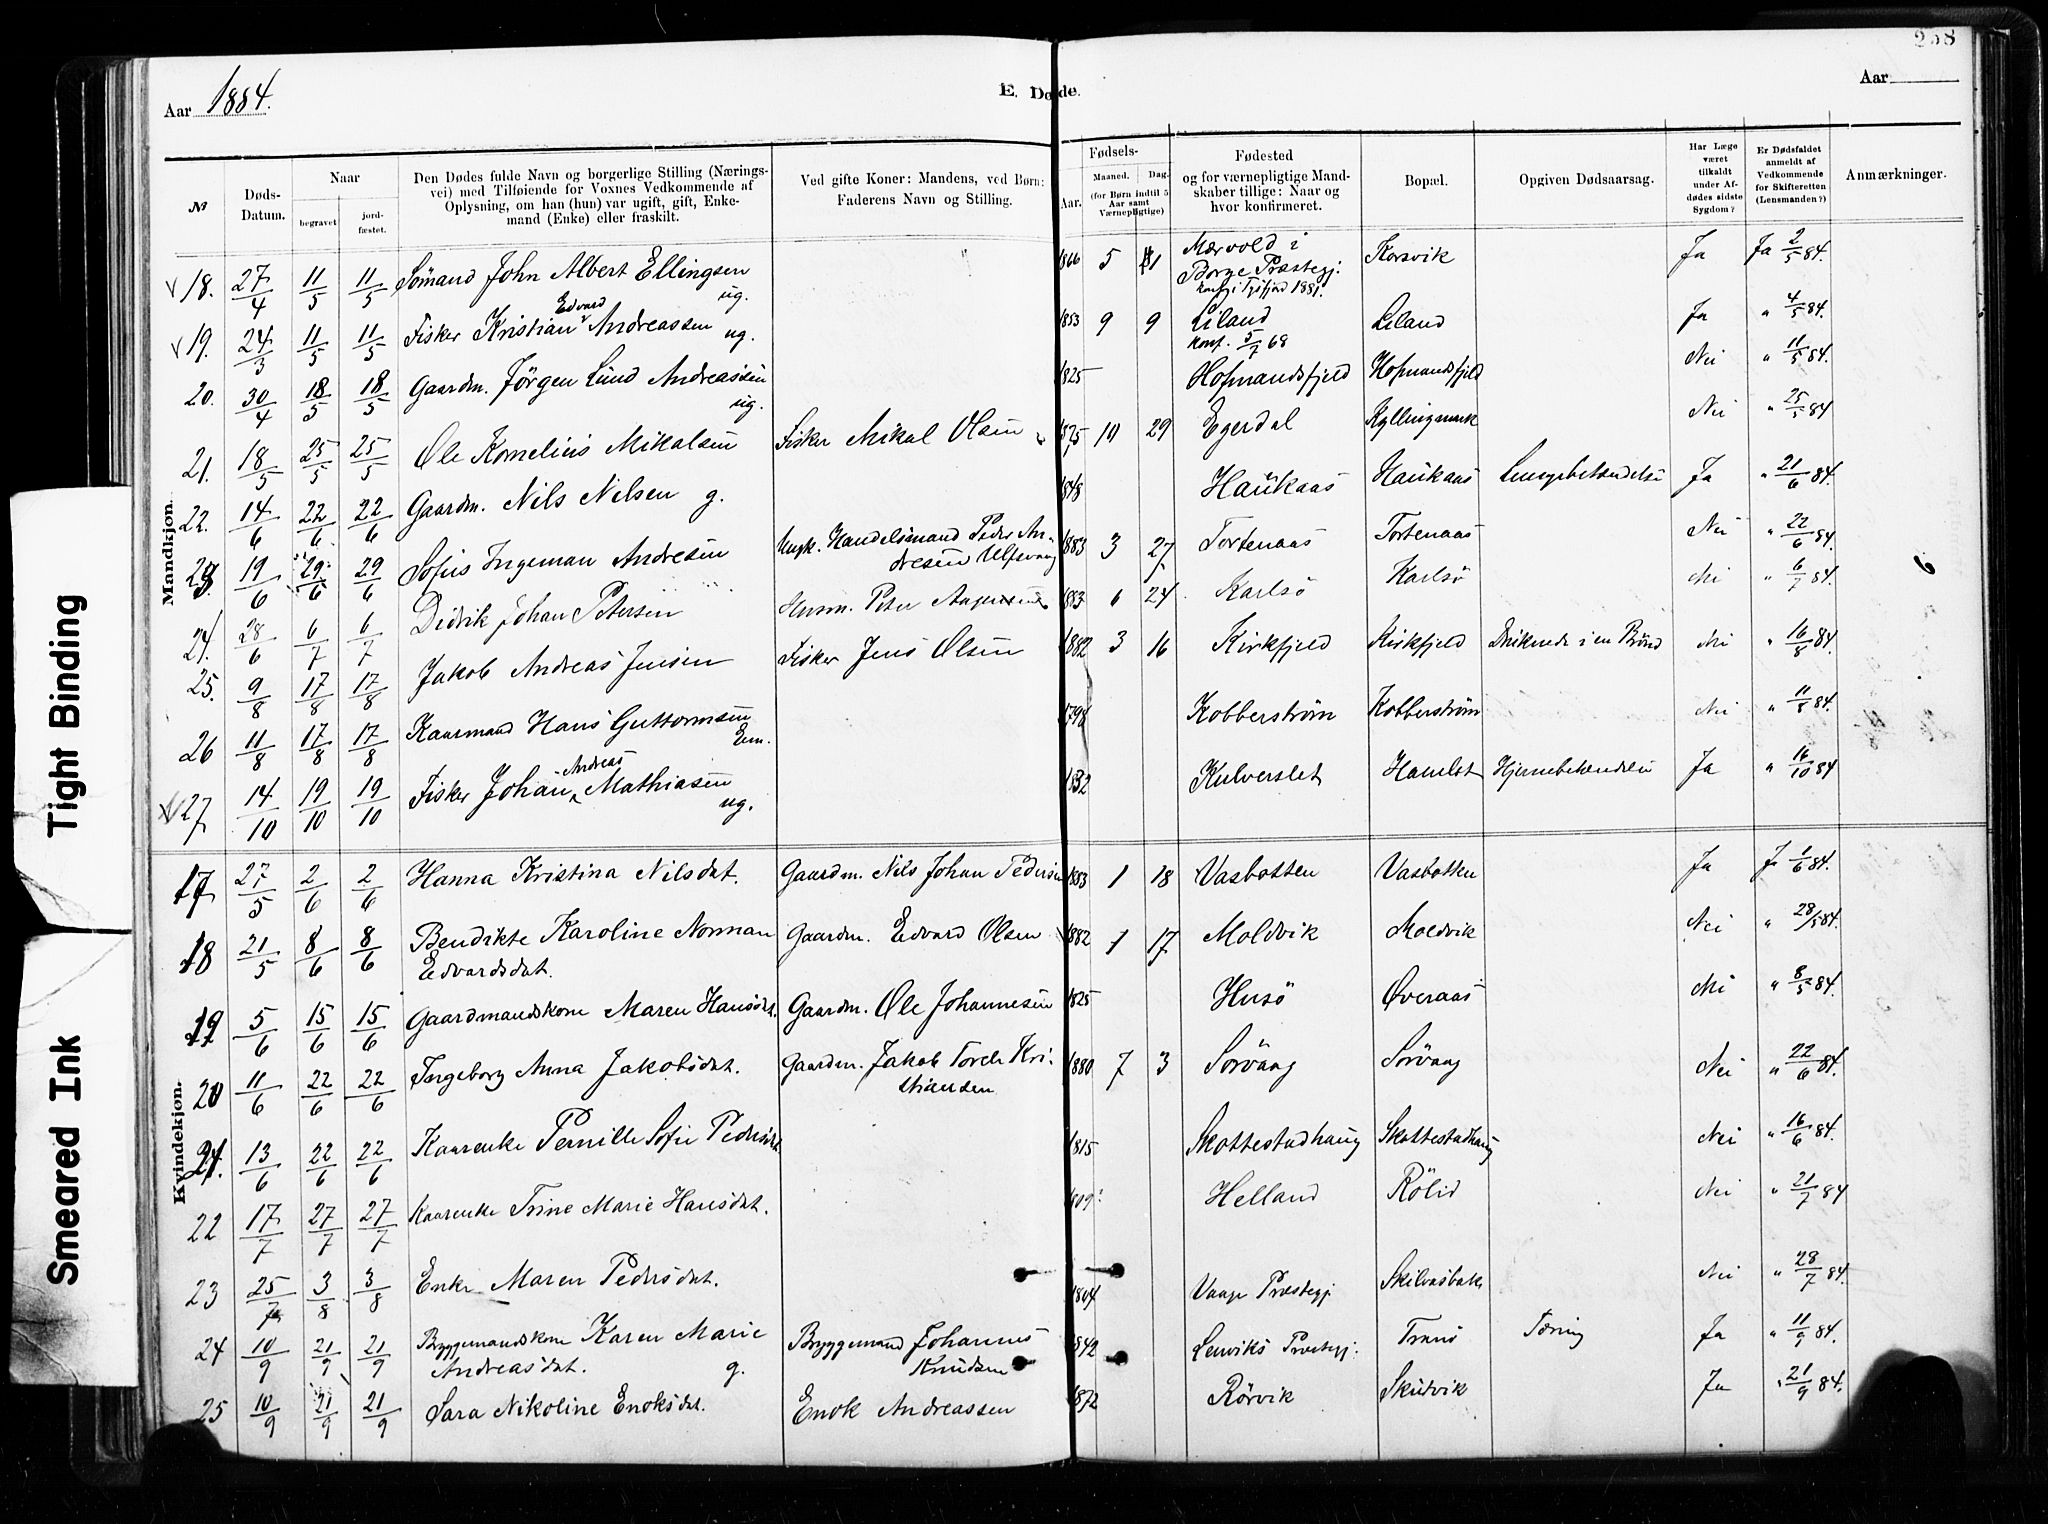 258
Aar 1884.
E. Døde.
Aar
№
Døds-Datum.
Naar
begravet
jord-fæstet.
Den Dødes fulde Navn og borgerlige Stilling (Nærings-
vei) med Tilføiende for Voxnes Vedkommende af
Oplysning, om han (hun) var ugift, gift, Enke-
mand (Enke) eller fraskilt.
Ved gifte Koner: Mandens, ved Børn:
Faderens Navn og Stilling.
Fødsels-
Aar.
Maaned.
Dag.
(for Børn indtil 5
Aar samt
Værnepligtige)
Fødested
og for værnepligtige Mand-
skaber tillige: Naar og
hvor konfirmeret.
Bopæl.
Opgiven Dødsaarsag.
Har Læge
været
tilkaldt
under Af-
dødes sidste
Sygdom?
Er Dødsfaldet
anmeldt af
Vedkommende
for Skifteretten
(Lensmanden?)
Anmærkninger.
Mandkjøn.
18. 27/4 11/5 11/5 Sömand John Albert Ellingsen ug. 1866 5 1 Mærvold i Korsvik Ja Ja 2/5 84.
Borge Præstegj.
konf. i Tysfjord 1881.
19. 24/3 11/5 11/5 Fisker Kristian Edvard Andreassen ug. 1853 9 9 Liland Liland Ja " 4/5 84.
konf. 5/7 68
20. 30/4 18/5 18/5 Gaardm. Jörgen Lund Andreassen ug. 1825 Hofmandsfjeld Hofmandsfjeld Nei " 11/5 84.
21. 18/5 25/5 25/5 Ole Kornelius Mikalsen Fisker Mikal Olsen 1875 10 29 Egerdal Kyllingmark Nei " 25/5 84
22. 14/6 22/6 22/6 Gaardm. Nils Nilsen g. 1848 Haukaas Haukaas Lungebetændelse Ja " 21/6 84.
23. 19/6 29/6 29/6 Sofus Ingeman Andresen Ungk. Handelsmand Peder An-
dresen Ulfsvaag 1883 3 27 Tortenaas Tortenaas Nei " 22/6 84.
24. 28/6 6/7 6/7 Didrik Johan Petersen Husm. Peter 1883 6 24 Karlsö Karlsö Nei " 6/7 84.
25. 9/8 17/8 17/8 Jakob Andreas Jensen Fisker Jens Olsen 1882 3 16 Kirkfjeld Kirkfjeld Druknede i en Brönd Nei " 16/8 84.
26 11/8 17/8 17/8 Kaarmand Hans Guttormsen Em. Kobberström Kobberström Nei " 11/8 84.
27 14/10 19/10 19/10 Fisker Johan Andreas Mathiasen ug. Kulverslet Hamlot Hjernebetændelse Ja " 16/10 84
6
Kvindekjøn.
17 27/5 2/6 2/6 Hanna Kristina Nilsdat. Gaardm. Nils Johan Pedersen 1883 1 18 Vasbotten Vasbotten Ja Ja 1/6 84.
18 21/5 8/6 8/6 Bendikte Karoline Norman Gaardm. Edvard Olsen 1882 1 17 Moldvik Moldvik Nei " 28/5 84.
Edvardsdat.
19 5/6 15/6 15/6 Gaardmandskone Maren Hansdt. Gaardm. Ole Johannesen 1825 Husö Overaas Nei " 8/5 84.
20 11/6 22/6 22/6 Ingeborg Anna Jakobsdat. Gaardm. Jakob Torel Kri-
stiansen 1880 7 3 Sorvaag Sorvaag Nei " 22/6 84.
21. 13/6 22/6 22/6 Kaarenke Pernille Sofie Pedersdt. 1815 Skottestadhaug Skottestadhaug Nei " 16/6 84.
22 17/7 27/7 27/7 Kaarenke Trine Marie Hansdat. 1809? Helland Rölid Nei " 21/7 84
23 25/7 3/8 3/8 Enke Maren Pedersdat. 1804 Vaage Præstegj Skilvasbak Nei " 28/7 84.
24 10/9 21/9 21/9 Bryggemandskone Karen Marie Bryggemand Johannes 1842 Lenviks Præstegj. Tranö Tæring Ja " 11/9 84.
Andreasdat. g. Knudsen
25 10/9 21/9 21/9 Sara Nikoline Enoksdat. Enok Andreassen 1872 Rörvik Skutvik Ja " 21/9 84.
Tight Binding
Smeared Ink